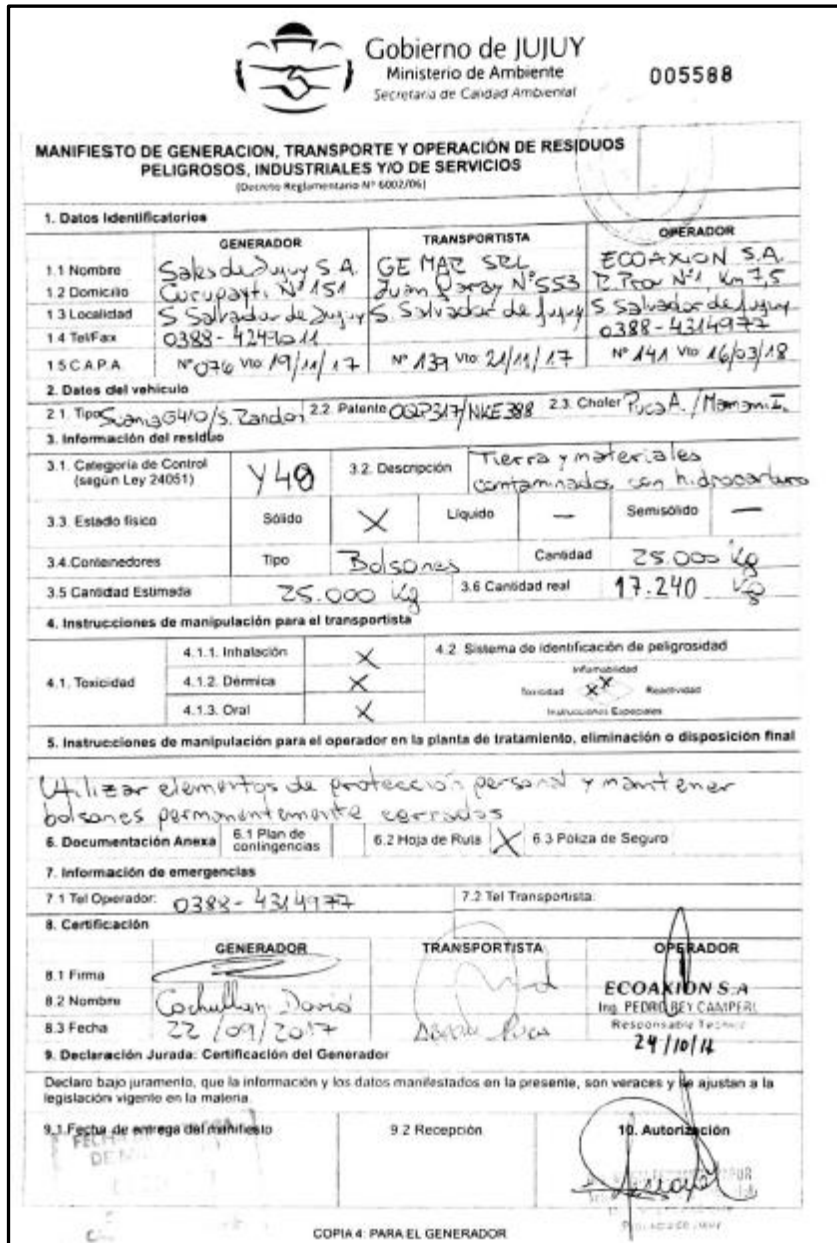 Gobierno de JUJUY
Ministerio de Ambiente
Secretaria de Calidad Ambiental
005588
MANIFIESTO DE GENERACION, TRANSPORTE Y OPERACIÓN DE RESIDUOS
PELIGROSOS, INDUSTRIALES Y/O DE SERVICIOS
(Decreto Reglamentario Nº 6002/06)
1. Datos Identificatorios
GENERADOR TRANSPORTISTA OPERADOR
1.1 Nombre Sales de Jujuy S.A. GE MAR SRL ECOAXION S.A.
1.2 Domicilio Curupayti Nº 151 Juan Garay Nº 553 R. Prov Nº1, Km 7,5
1.3 Localidad S Salvador de Jujuy S. Salvador de Jujuy S Salvador de Jujuy
1.4 Tel/Fax 0388- 0388-4314977
1.5 C.A.P.A. Nº 076 Vto 19/11/17 Nº 139 Vto 21/11/17 Nº 141 Vto 16/03/18
2. Datos del vehículo
2.1. Tipo Scania G410/S. 2.2. Patente OQP317/NKE388 2.3. Chofer Puca A. / Mamani I.
3. Información del residuo
3.1. Categoría de Control
(según Ley 24051)
Y48 3.2. Descripción Tierra y materiales
contaminados con hidrocarburo
3.3. Estado físico Sólido X Líquido — Semisólido —
3.4. Contenedores Tipo Bolsones Cantidad 25.000 Kg
3.5 Cantidad Estimada 25.000 Kg 3.6 Cantidad real 17.240 Kg
4. Instrucciones de manipulación para el transportista
4.1. Toxicidad
4.1.1. Inhalación X
4.1.2. Dérmica X
4.1.3. Oral X
4.2. Sistema de identificación de peligrosidad
Inflamabilidad
Toxicidad XX Reactividad
Instrucciones Especiales
5. Instrucciones de manipulación para el operador en la planta de tratamiento, eliminación o disposición final
Utilizar elementos de protección personal y mantener
bolsones permanentemente cerrados
6. Documentación Anexa 6.1 Plan de contingencias 6.2 Hoja de Ruta X 6.3 Póliza de Seguro
7. Información de emergencias
7.1 Tel Operador: 0388-4314977 7.2 Tel Transportista:
8. Certificación
GENERADOR TRANSPORTISTA OPERADOR
8.1 Firma
ECOAXION S.A
8.2 Nombre David Puca Ing. PEDRO REY CAMPERI
Responsable Técnico
8.3 Fecha 22/09/2017 24/10/17
9. Declaración Jurada: Certificación del Generador
Declaro bajo juramento, que la información y los datos manifestados en la presente, son veraces y se ajustan a la
legislación vigente en la materia.
9.1. Fecha de entrega del manifiesto 9.2 Recepción 10. Autorización
COPIA 4: PARA EL GENERADOR